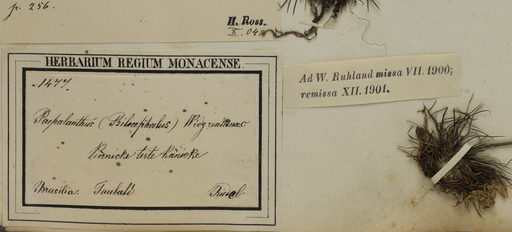 p. 256.
H. Ross.
X. 04.
HERBARIUM REGIUM MONACENSE.
1477.
Paepalanthus (Psilocephalus) Widgrenianus
Körnicke teste Körnicke
Brasilia: Taubaté Riedel
Ad W. Ruhland missa VII. 1900;
remissa XII. 1901.